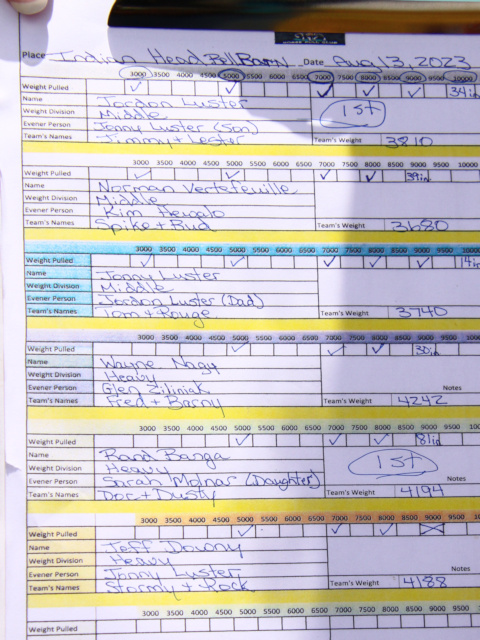 Place Indian Head Bell Barn Date Aug 13, 2023
3000 3500 4000 4500 5000 5500 6000 6500 7000 7500 8000 8500 9000 9500 10000
Weight Pulled ✓ ✓ ✓ ✓ ✓ 34in
Name Jordon Luster
Weight Division Middle 1st
Evener Person Jonny Luster (Son)
Team's Names Jimmy Lester Team's Weight 3810
3000 3500 4000 4500 5000 5500 6000 6500 7000 7500 8000 8500 9000 9500 10000
Weight Pulled ✓ ✓ ✓ ✓ 39in
Name Norman Vertefeuille
Weight Division Middle
Evener Person Kim
Team's Names Spike + Bud Team's Weight 3680
3000 3500 4000 4500 5000 5500 6000 6500 7000 7500 8000 8500 9000 9500 1000
Weight Pulled ✓ ✓ ✓ ✓ ✓ 14in
Name Jonny Luster
Weight Division Middle
Evener Person Jordon Luster (Dad)
Team's Names Tom + Rouge Team's Weight 3740
3000 3500 4000 4500 5000 5500 6000 6500 7000 7500 8000 8500 9000 9500 100
Weight Pulled ✓ ✓ ✓ 30in
Name Wayne Nagy
Weight Division Heavy
Evener Person Glen Ziliniak Notes
Team's Names Fred + Barny Team's Weight 4242
3000 3500 4000 4500 5000 5500 6000 6500 7000 7500 8000 8500 9000 9500 10
Weight Pulled ✓ ✓ ✓ 81in
Name Rand Banga
Weight Division Heavy 1st
Evener Person Sarah Molnar (Daughter) Notes
Team's Names Doc + Dusty Team's Weight 4194
3000 3500 4000 4500 5000 5500 6000 6500 7000 7500 8000 8500 9000 9500 1
Weight Pulled ✓ ✓ ✓
Name Jeff Downy
Weight Division Heavy
Evener Person Jonny Luster Notes
Team's Names Stormy + Rock Team's Weight 4188
3000 3500 4000 4500 5000 5500 6000 6500 7000 7500 8000 8500 9000 9500
Weight Pulled